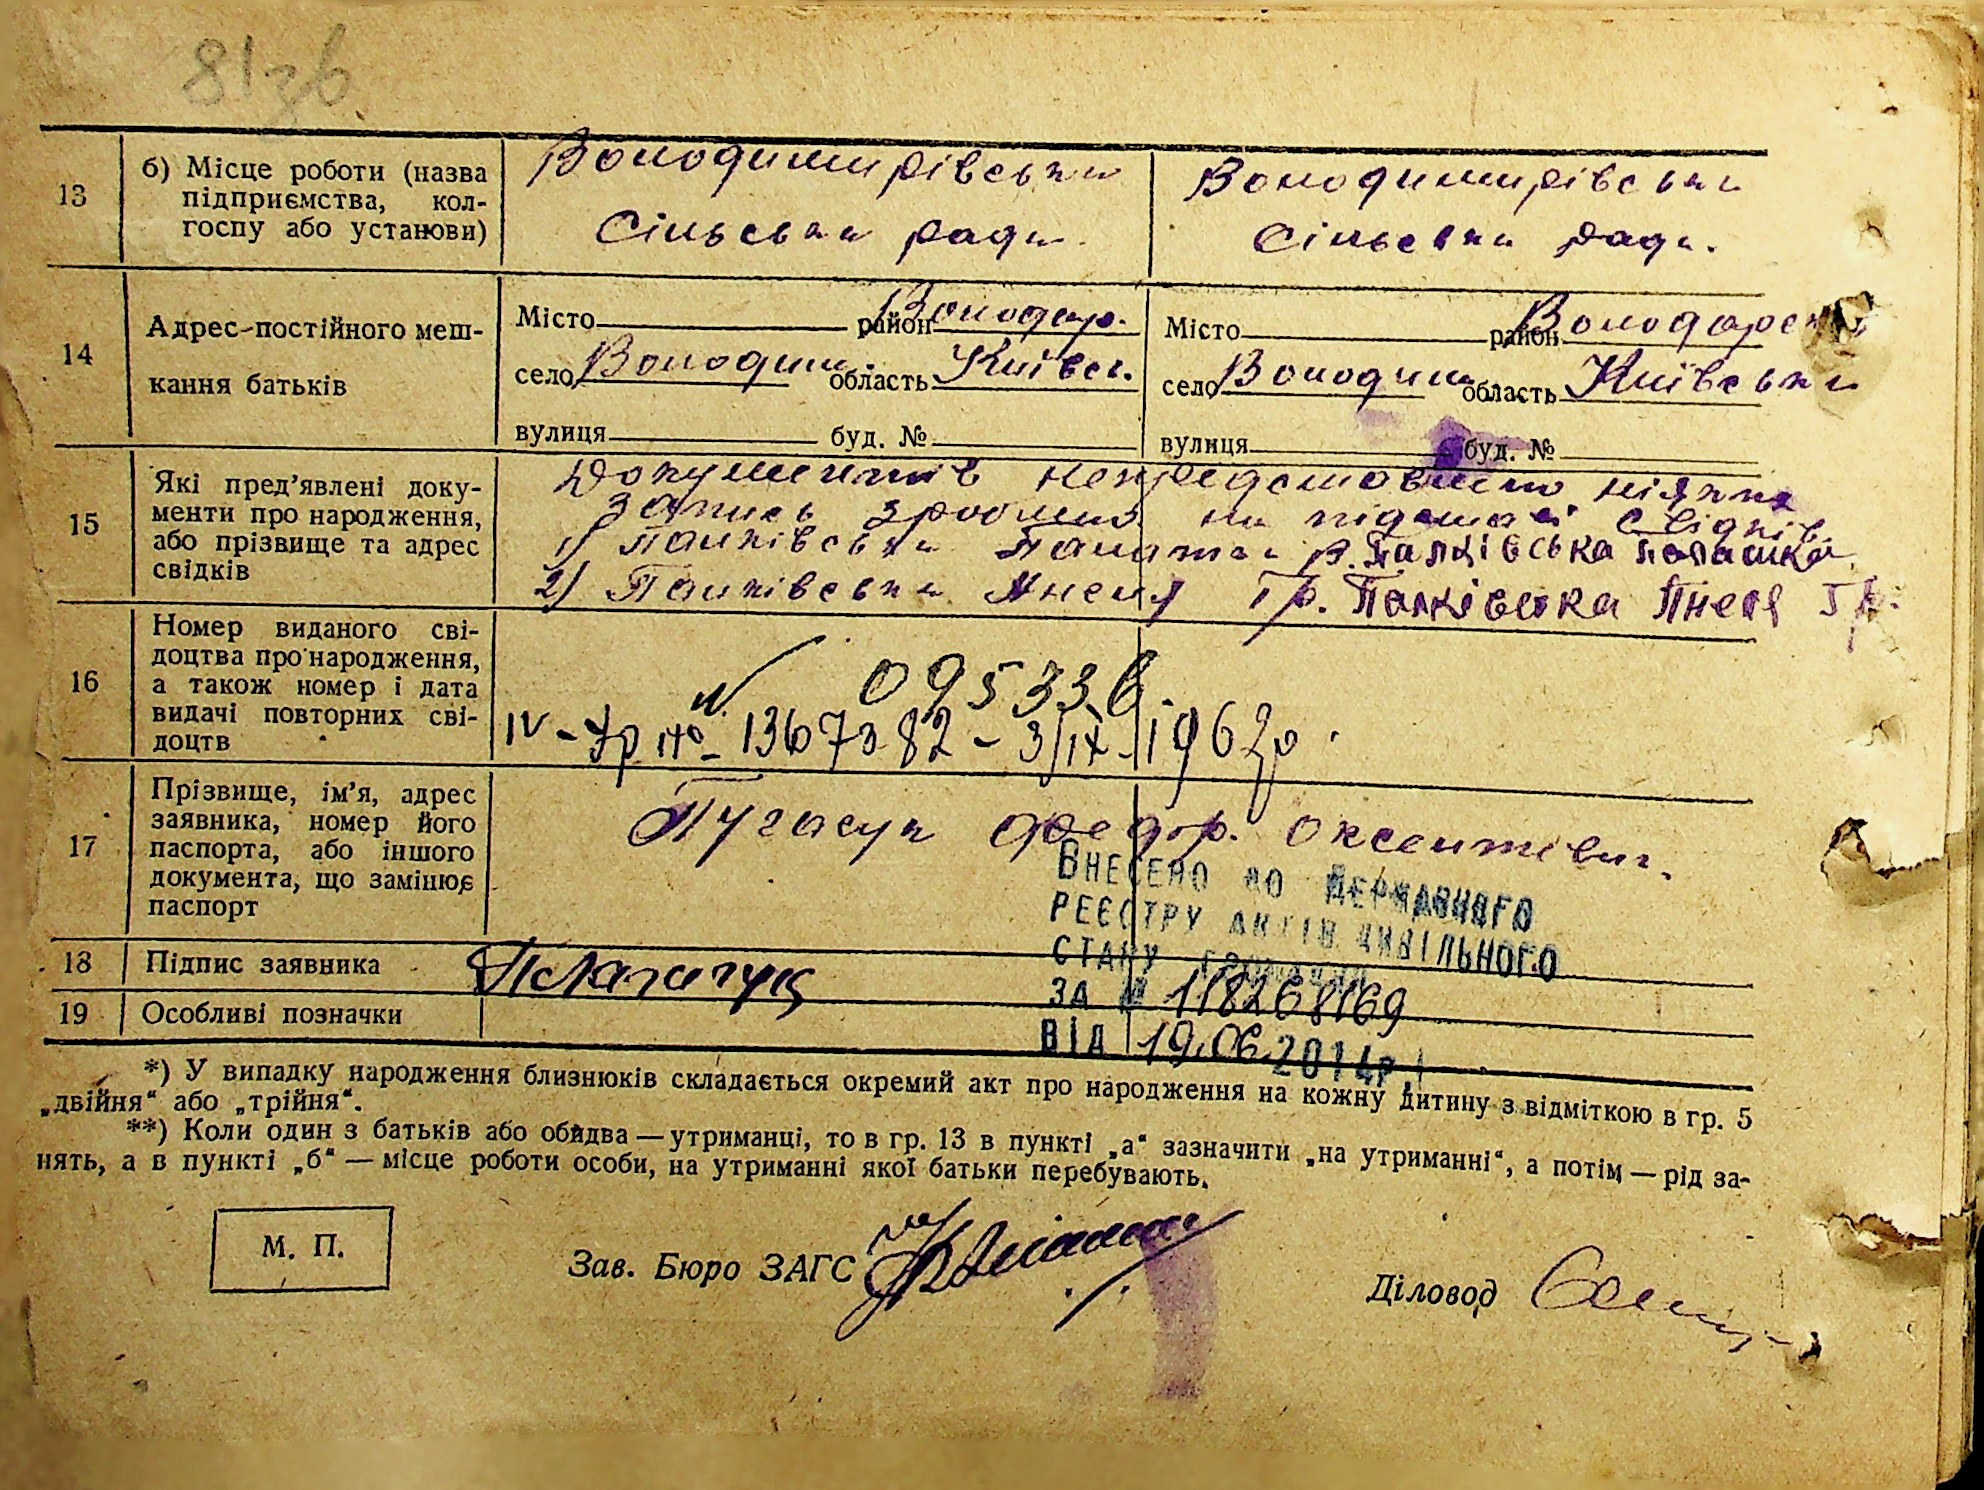 81зв
13
б) Місце роботи (назва
підприємства, кол-
госпу або установи)
Володимирівська
Сільська рада
Володимирівська
Сільська рада.
14
Адрес постійного меш-
кання батьків
Місто район Володар.
село Володим. область Київсь.
вулиця буд. №
Місто район Володарськ
село Володим. область Київська
вулиця буд. №
15
Які пред'явлені доку-
менти про народження,
або прізвище та адрес
свідків
Документів непредставлено ніяких
Запись зроблено на підставі свідків
1) Палківська Палашка В. Палківська Палашка
2) Палківська Янеля Гр. Палківська Янеля Гр.
16
Номер виданого сві-
доцтва про народження,
а також номер і дата
видачі повторних сві-
доцтв
№ 095336
IV-Ур № 1367382 - 3/IX-1962р.
17
Прізвище, ім'я, адрес
заявника, номер його
паспорта, або іншого
документа, що замінює
паспорт
Федор. Оксентієвич.
ВНЕСЕНО ДО ДЕРЖАВНОГО
РЕЄСТРУ АКТІВ ЦИВІЛЬНОГО
СТАНУ ГРОМАДЯН
ЗА № 118268169
ВІД 19.06.2014р
18
Підпис заявника
19
Особливі позначки
*) У випадку народження близнюків складається окремий акт про народження на кожну дитину з відміткою в гр. 5
„двійня“ або „трійня“.
**) Коли один з батьків або обидва — утриманці, то в гр. 13 в пункті „а“ зазначити „на утриманні“, а потім — рід за-
нять, а в пункті „б“ — місце роботи особи, на утриманні якої батьки перебувають.
М. П.
Зав. Бюро ЗАГС
Діловод